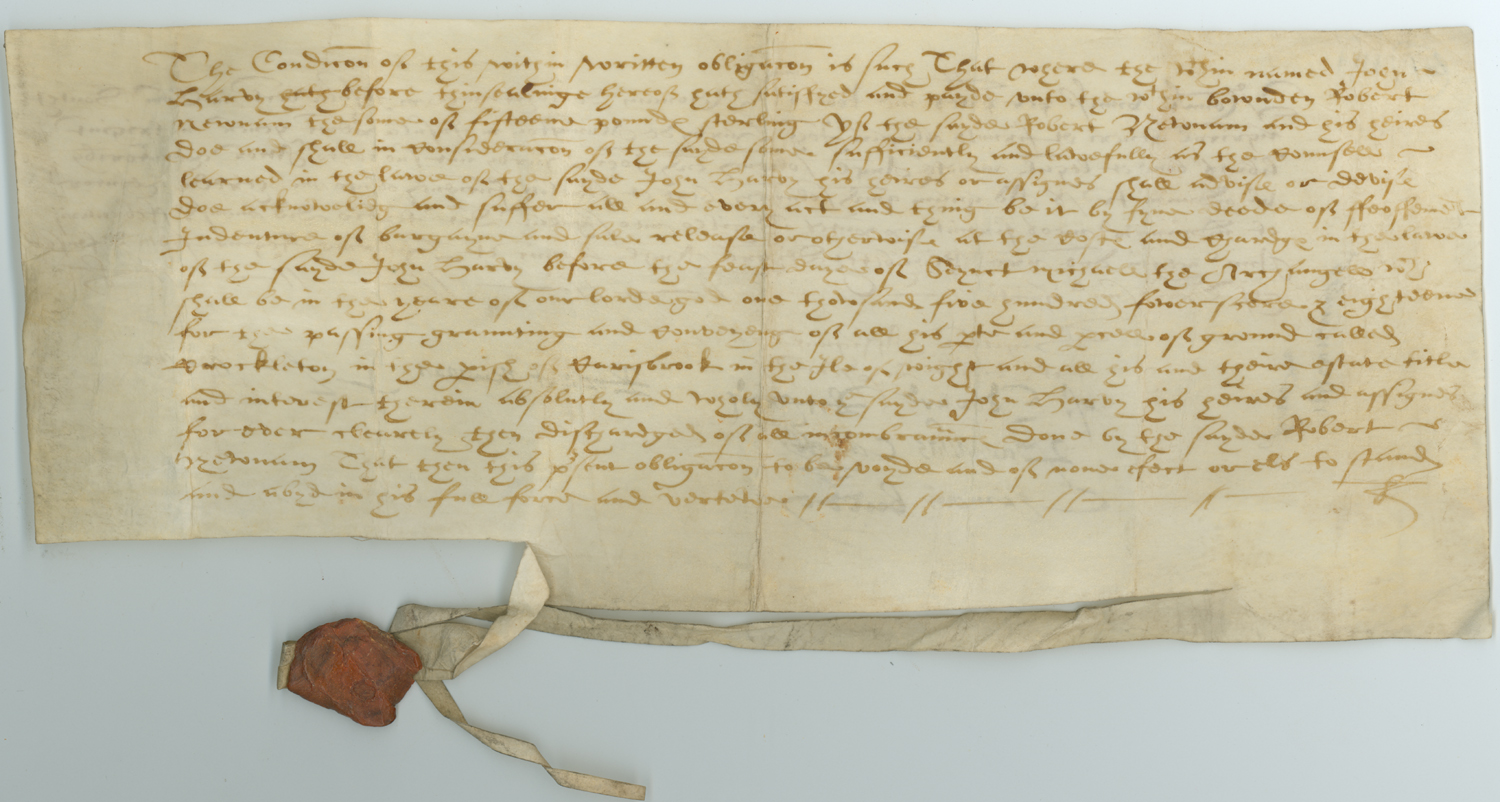 The Condicon of this within written obligacon is such That where the wthin named John
Harvy hath before thinsealinge hereof hath satisfyed and payde unto the wthin bownden Robert
Newnam the some of fifteene pounds sterling Yf the sayde Robert Newnam and his heires
doe and shall in consideracon of the sayde some sufficiently and lawefully as the counsell
learned in the lawe of the sayde John Harvy his heires or assignes shall advise or devise
doe acknowelidg and suffer all and every act and thing be it by fyne deede of ffeoffement
Indenture of bargayne and sale release or otherwise at the costs and chardgs in the lawe
of the sayde John Harvy before the feast daye of Seynct Michaell the Archangell wch
shall be in the yeare of our lorde god one thowsand five hundred fower score & eighteene
for the passing graunting and conveyeng of all his pte and pcell of ground called
Brockleton in the pish of Carisbrook in the Ile of wight and all his and theire estate title
and interest therein absolutly and wholy unto ye sayde John Harvy his heires and assignes
for ever clearely then dischardged of all incombraunce done by the sayde Robert
Newnam That then this psent obligacon to be voyde and of none efect or els to stand
and abyde in his full force and vertewe